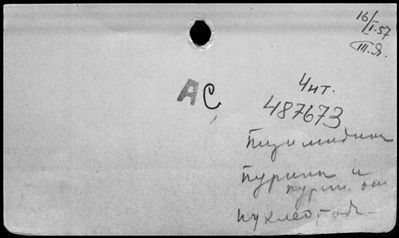 16/I.57
III.Я.
АС
Чит.
487673
Пиримидин
пурины и
пурин. осн
нуклео